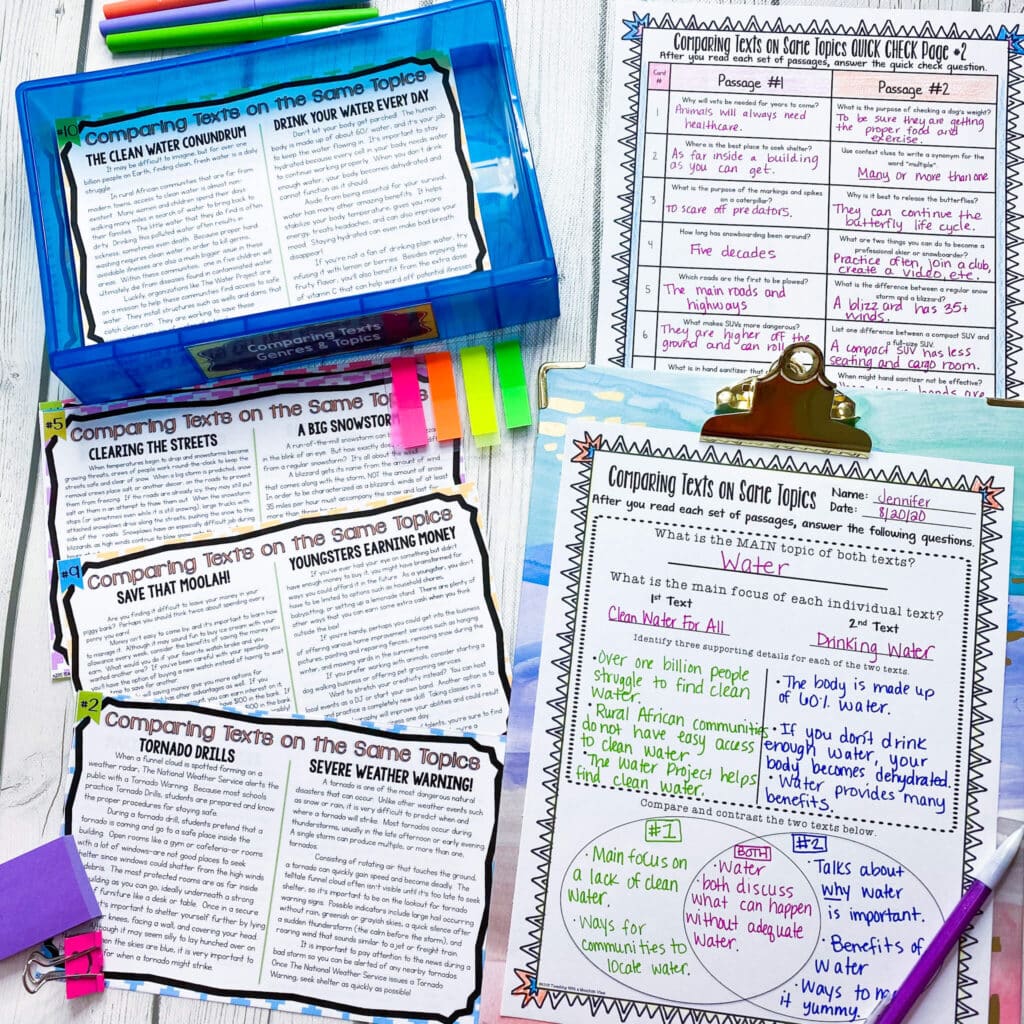 #10
Comparing Texts on the Same Topics
THE CLEAN WATER CONUNDRUM
It may be difficult to imagine, but for over one
billion people on Earth, finding clean, fresh water is a daily
struggle.
In rural African communities that are far from
modern towns, access to clean water is almost non-
existent. Many women and children spend their days
walking many miles in search of water to bring back to
their families. The little water that they do find is often
dirty. Drinking this polluted water often results in
sickness, sometimes even death. Because proper hand
washing requires clean water in order to kill germs,
avoidable illnesses are also a much bigger issue in these
areas. Within these communities, one in five children will
ultimately die from diseases found in contaminated water.
Luckily, organizations like The Water Project are
on a mission to help these communities find access to safe
water. They install structures such as wells and dams that
catch clean rain. They are working to save those
DRINK YOUR WATER EVERY DAY
Don't let your body get parched! The human
body is made up of about 60% water, and it's your job
to keep the water flowing in. It's important to stay
hydrated because every cell in your body needs water
to continue working properly. When you don't drink
enough water, your body becomes dehydrated and
cannot function as it should.
Aside from being essential for your survival,
water has many other amazing benefits. It helps
stabilize your body temperature, gives you more
energy, treats headaches, and can also improve your
mood. Staying hydrated can even make bad breath
disappear!
If you're not a fan of drinking plain water, try
infusing it with lemon or berries. Besides enjoying the
fruity flavor, you'll also benefit from the extra dose
of vitamin C that can help ward off potential illness
Comparing Texts
Genres & Topics
#5
Comparing Texts on the Same Topics
CLEARING THE STREETS
When temperatures begin to drop and snowstorms become
growing threats, crews of people work round-the-clock to keep the
streets safe and clear of snow. When a big storm is predicted, snow
removal crews place salt, or another deicer, on the roads to prevent
them from freezing. If the roads are already icy, they may still put
salt on them in an attempt to thaw them out. When the snowstorm
stops (or sometimes even while it is still snowing), large trucks with
attached snowplows drive along the streets, pushing the snow to the
side of the roads. Snowplows have an especially difficult job during
blizzards, as high winds continue to blow snow
A BIG SNOWSTOR
A run-of-the-mill snowstorm can
in the blink of an eye. But how exactly does
from a regular snowstorm? It's all about the
A blizzard gets its name from the amount of wind
that comes along with the storm, NOT the
In order to be characterized as a blizzard, winds of at least
35 miles per hour must accompany the snow and last for
more than three
#9
Comparing Texts on the Same Topics
SAVE THAT MOOLAH!
Are you finding it difficult to leave your money in your
piggy bank? Perhaps you should think twice about spending every
penny you earn!
Money isn't easy to come by, and it's important to learn how
to manage it. Although it may sound fun to buy ice cream with your
allowance every week, consider the benefits of saving the money you
earn. What would you do if your favorite watch broke and you
wanted another one? If you've been careful with your spending
you'll have the option of buying a new watch instead of having to wait
to save for another.
YOUNGSTERS EARNING MONEY
If you've ever had your eye on something but didn't
have enough money to buy it, you might have brainstormed for
ways you could afford it in the future. As a youngster, you don't
have to be limited to options such as household chores,
babysitting, or setting up a lemonade stand. There are plenty of
other ways that you can earn some extra cash when you think
outside the box!
If you're handy, perhaps you could get into the business
of offering various home improvement services such as hanging
pictures, painting and repairing fences, removing snow during the
winter, and mowing yards in the summertime.
#2
Comparing Texts on the Same Topics
TORNADO DRILLS
When a funnel cloud is spotted forming on a
weather radar, The National Weather Service alerts the
public with a Tornado Warning. Because most schools
practice Tornado Drills, students are prepared and know
the proper procedures for staying safe.
During a tornado drill, students pretend that a
tornado is coming and go to a safe place inside the
building. Open rooms like a gym or cafeteria–or rooms
with a lot of windows–are not good places to seek
shelter since windows could shatter from the high
winds. The most protected rooms are as far inside
SEVERE WEATHER WARNING!
A tornado is one of the most dangerous natural
disasters that can occur. Unlike other weather events such
as snow or rain, it is very difficult to predict when and
where a tornado will strike. Most tornados occur during
thunderstorms, usually in the late afternoon or early evening.
A single storm can produce multiple, or more than one,
tornadoes.
Consisting of rotating air that touches the ground,
a tornado can quickly gain speed and become deadly. The
telltale funnel cloud often isn't visible until it's too late to seek
shelter, so it's important to be on the lookout for tornado
warning signs. Possible indicators include large hail occurring
without rain, greenish or grayish skies, a quick silence after
a sudden thunderstorm (the calm before the storm), and
roaring wind that sounds similar to a jet or freight train.
It is important to pay attention to the news during a
bad storm so you can be alerted of any nearby tornados.
Once The National Weather Service issues a Tornado
Warning, seek shelter as quickly as possible!
Comparing Texts on Same Topics QUICK CHECK Page #2
After you read each set of passages, answer the quick check question.
Card #
Passage #1
Passage #2
1
Why will vets be needed for years to come?
Animals will always need
healthcare.
What is the purpose of checking a dog's weight?
To be sure they are getting
the proper food and
exercise.
2
Where is the best place to seek shelter?
As far inside a building
as you can get.
Use context clues to write a synonym for the
word "multiple".
Many or more than one
3
What is the purpose of the markings and spikes
on a caterpillar?
To scare off predators.
Why is it best to release the butterflies?
They can continue the
butterfly life cycle.
4
How long has snowboarding been around?
Five decades
What are two things you can do to become a
professional skier or snowboarder?
Practice often, join a club,
create a video, etc.
5
Which roads are the first to be plowed?
The main roads and
highways
What is the difference between a regular snow
storm and a blizzard?
A blizzard has 35+
winds.
6
What makes SUVs more dangerous?
They are higher off the
ground and can roll
List one difference between a compact SUV and
a full-size SUV.
A compact SUV has less
seating and cargo room.
What is in hand sanitizer that
When might hand sanitizer not be effective?
Comparing Texts on Same Topics
Name: Jennifer
Date: 8/20/20
After you read each set of passages, answer the following questions.
What is the MAIN topic of both texts?
Water
What is the main focus of each individual text?
1st Text
Clean Water For All
2nd Text
Drinking Water
Identify three supporting details for each of the two texts.
• Over one billion people
struggle to find clean
water.
• Rural African communities
do not have easy access
to clean water.
• The Water Project helps
find clean water.
• The body is made up
of 60% water.
• If you don't drink
enough water, your
body becomes dehydrated.
• Water provides many
benefits.
Compare and contrast the two texts below.
#1
• Main focus on
a lack of clean
water.
• Ways for
communities to
locate water.
BOTH
• Water
• both discuss
what can happen
without adequate
water.
#2
• Talks about
why water
is important.
• Benefits of
water
• Ways to
it yummy.